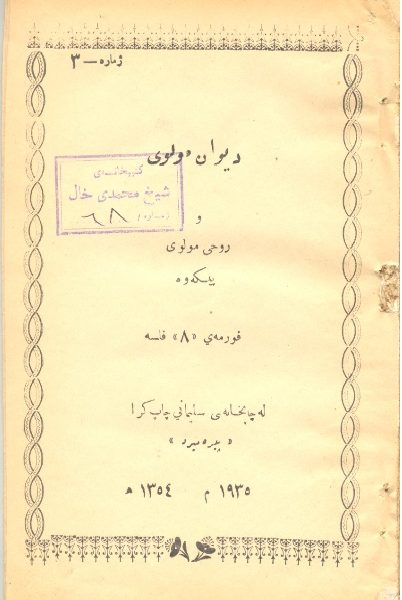 ژماره — ٣
دیوان مولوی
کتیبخانەی
شیخ محمدی خال
(ژماره) ٦٨
و
روحی مولوی
پیکەوە
فورمەی «٨» فلسه
لە چاپخانەی سلیمانی چاپ کرا
« پیرەمیرد »
١٩٣٥ م ١٣٥٤ ه